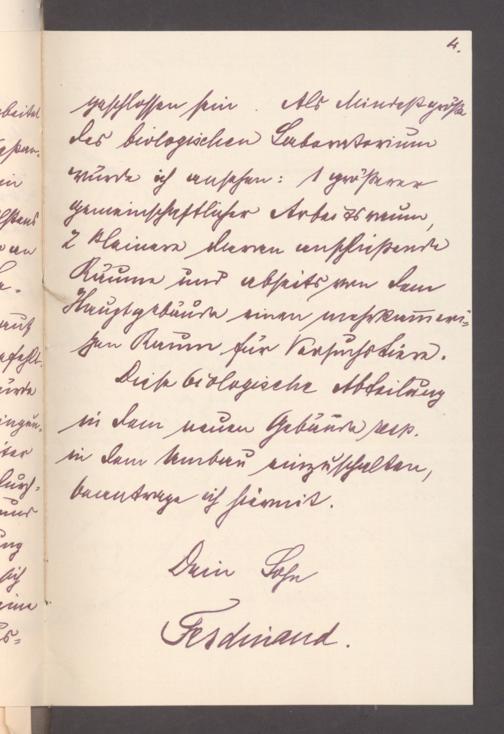 4.
geschlossen sein. Als Mindestgröße
des biologischen Laboratorium
würde ich ansehen: 1 größerer
gemeinschaftlicher Arbeitsraum,
2 kleinere daran anschließende
Räume und abseits von dem
Hauptgebäude einen mehrkammeri-
gen Raum für Versuchstiere.
Diese biologische Abteilung
in dem neuen Gebäude resp.
in dem Umbau einzuschalten,
beantrage ich hiermit.
Dein Sohn
Ferdinand.